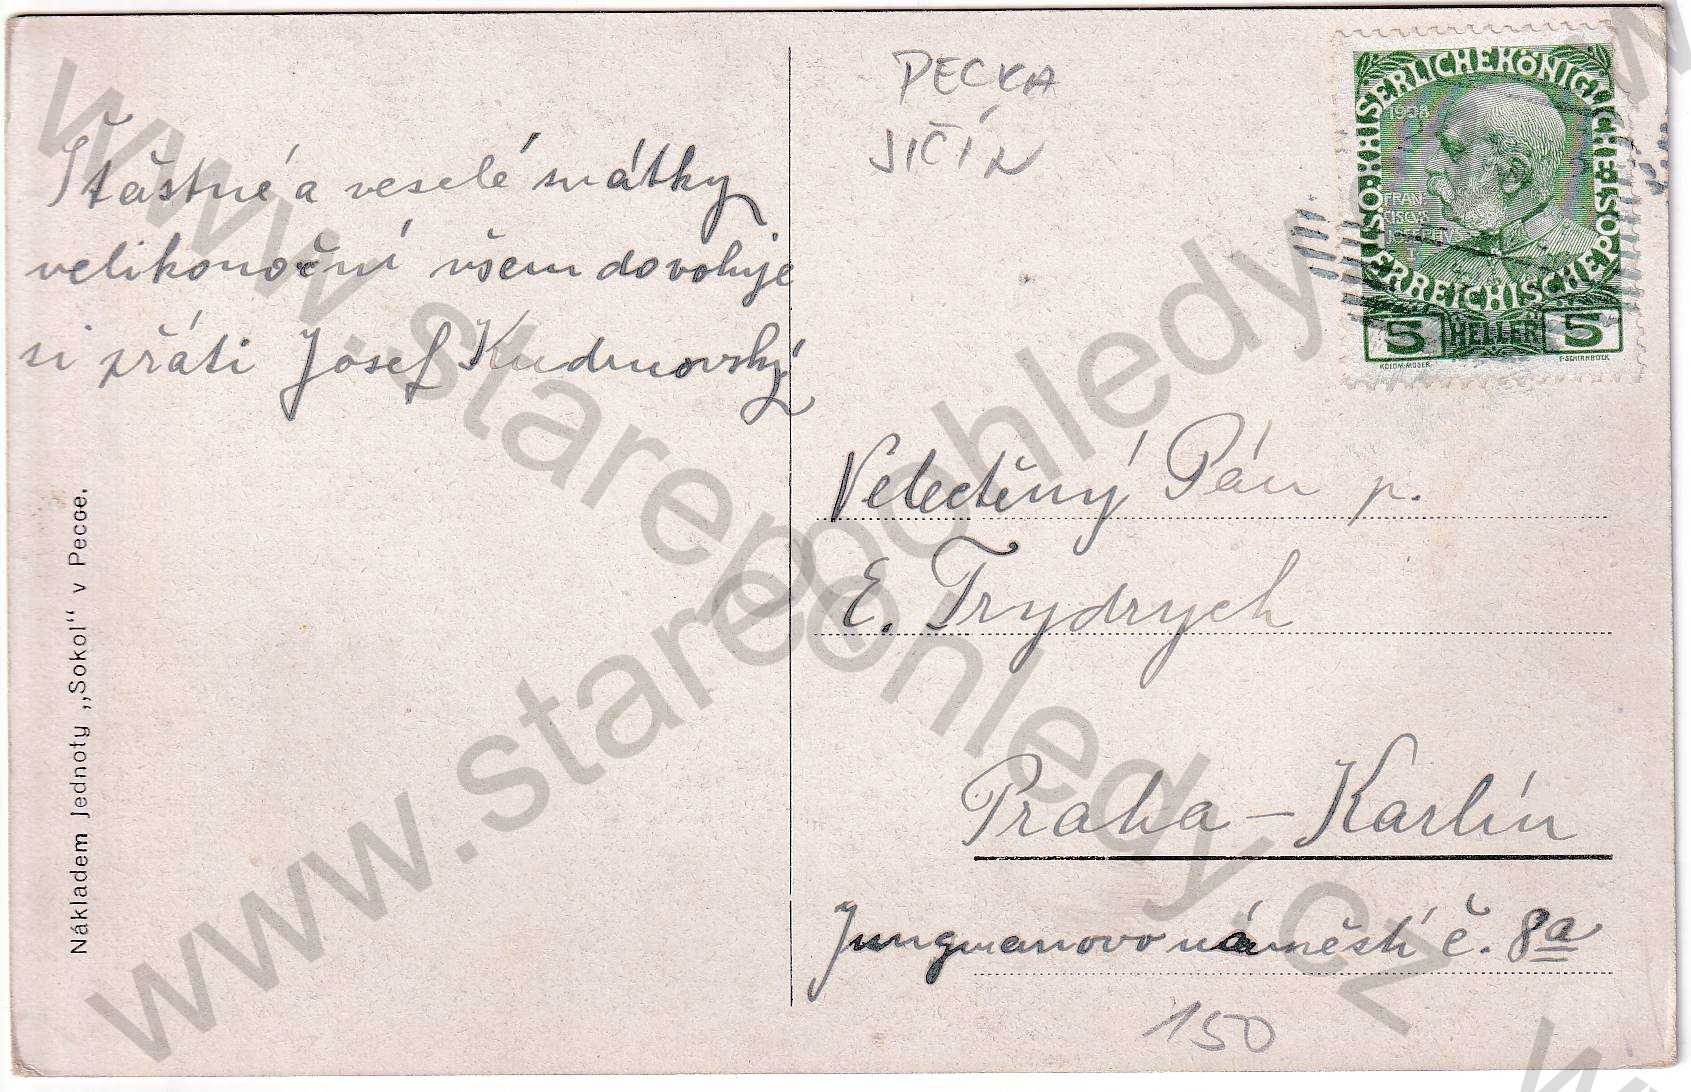 Šťastné a veselé svátky
velikonoční všem dovoluje
si přáti Josef Kudrnovský
Nákladem Jednoty „Sokol“ v Pecce.
PECKA
JIČÍN
KAISERLICHEKÖNIGLICHE ÖSTERREICHISCHE POST
1908
FRAN
CISCVS
IOSEPH
I
5 HELLER 5
KOLOM·MOSER
F·SCHIRNBÖCK
Velectěný Pán p.
E. Trydrych
Praha - Karlín
Jungmanovo náměstí č. 8a
150
www.starepohledy.cz
www.starepohledy.cz